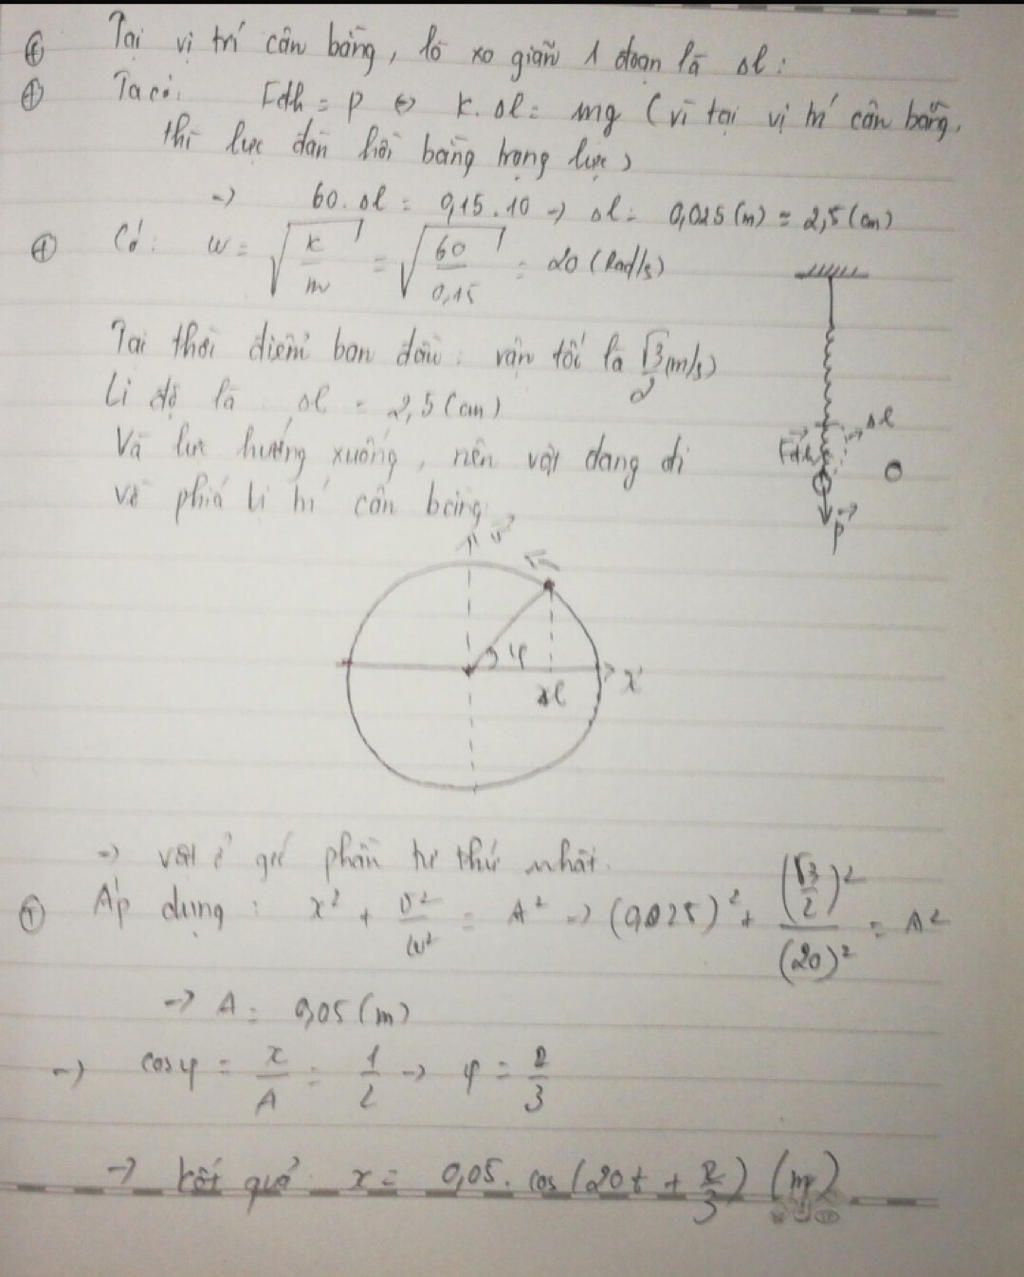 Tại vị trí cân bằng, lò xo giãn 1 đoạn là Δl:
Ta có: Fđh = P ⇔ K.Δl = mg (vì tại vị trí cân bằng,
thì lực đàn hồi bằng trọng lực)
→ 60.Δl = 0,15.10 → Δl = 0,025(m) = 2,5(cm)
Có: ω = √(k/m) = √(60/0,15) = 20 (Rad/s)
Tại thời điểm ban đầu: vận tốc là √3/2 (m/s)
Li độ là Δl = 2,5(cm)
Và lực hướng xuống, nên vật đang đi
về phía vị trí cân bằng
Δl
Fđh
O
P
v
φ
Δl
x
→ vật ở góc phần tư thứ nhất.
Áp dụng: x² + v²/ω² = A² → (0,025)² + (√3/2)²/(20)² = A²
→ A = 0,05(m)
→ cosφ = x/A = 1/2 → φ = π/3
→ kết quả x = 0,05.cos(20t + π/3) (m)